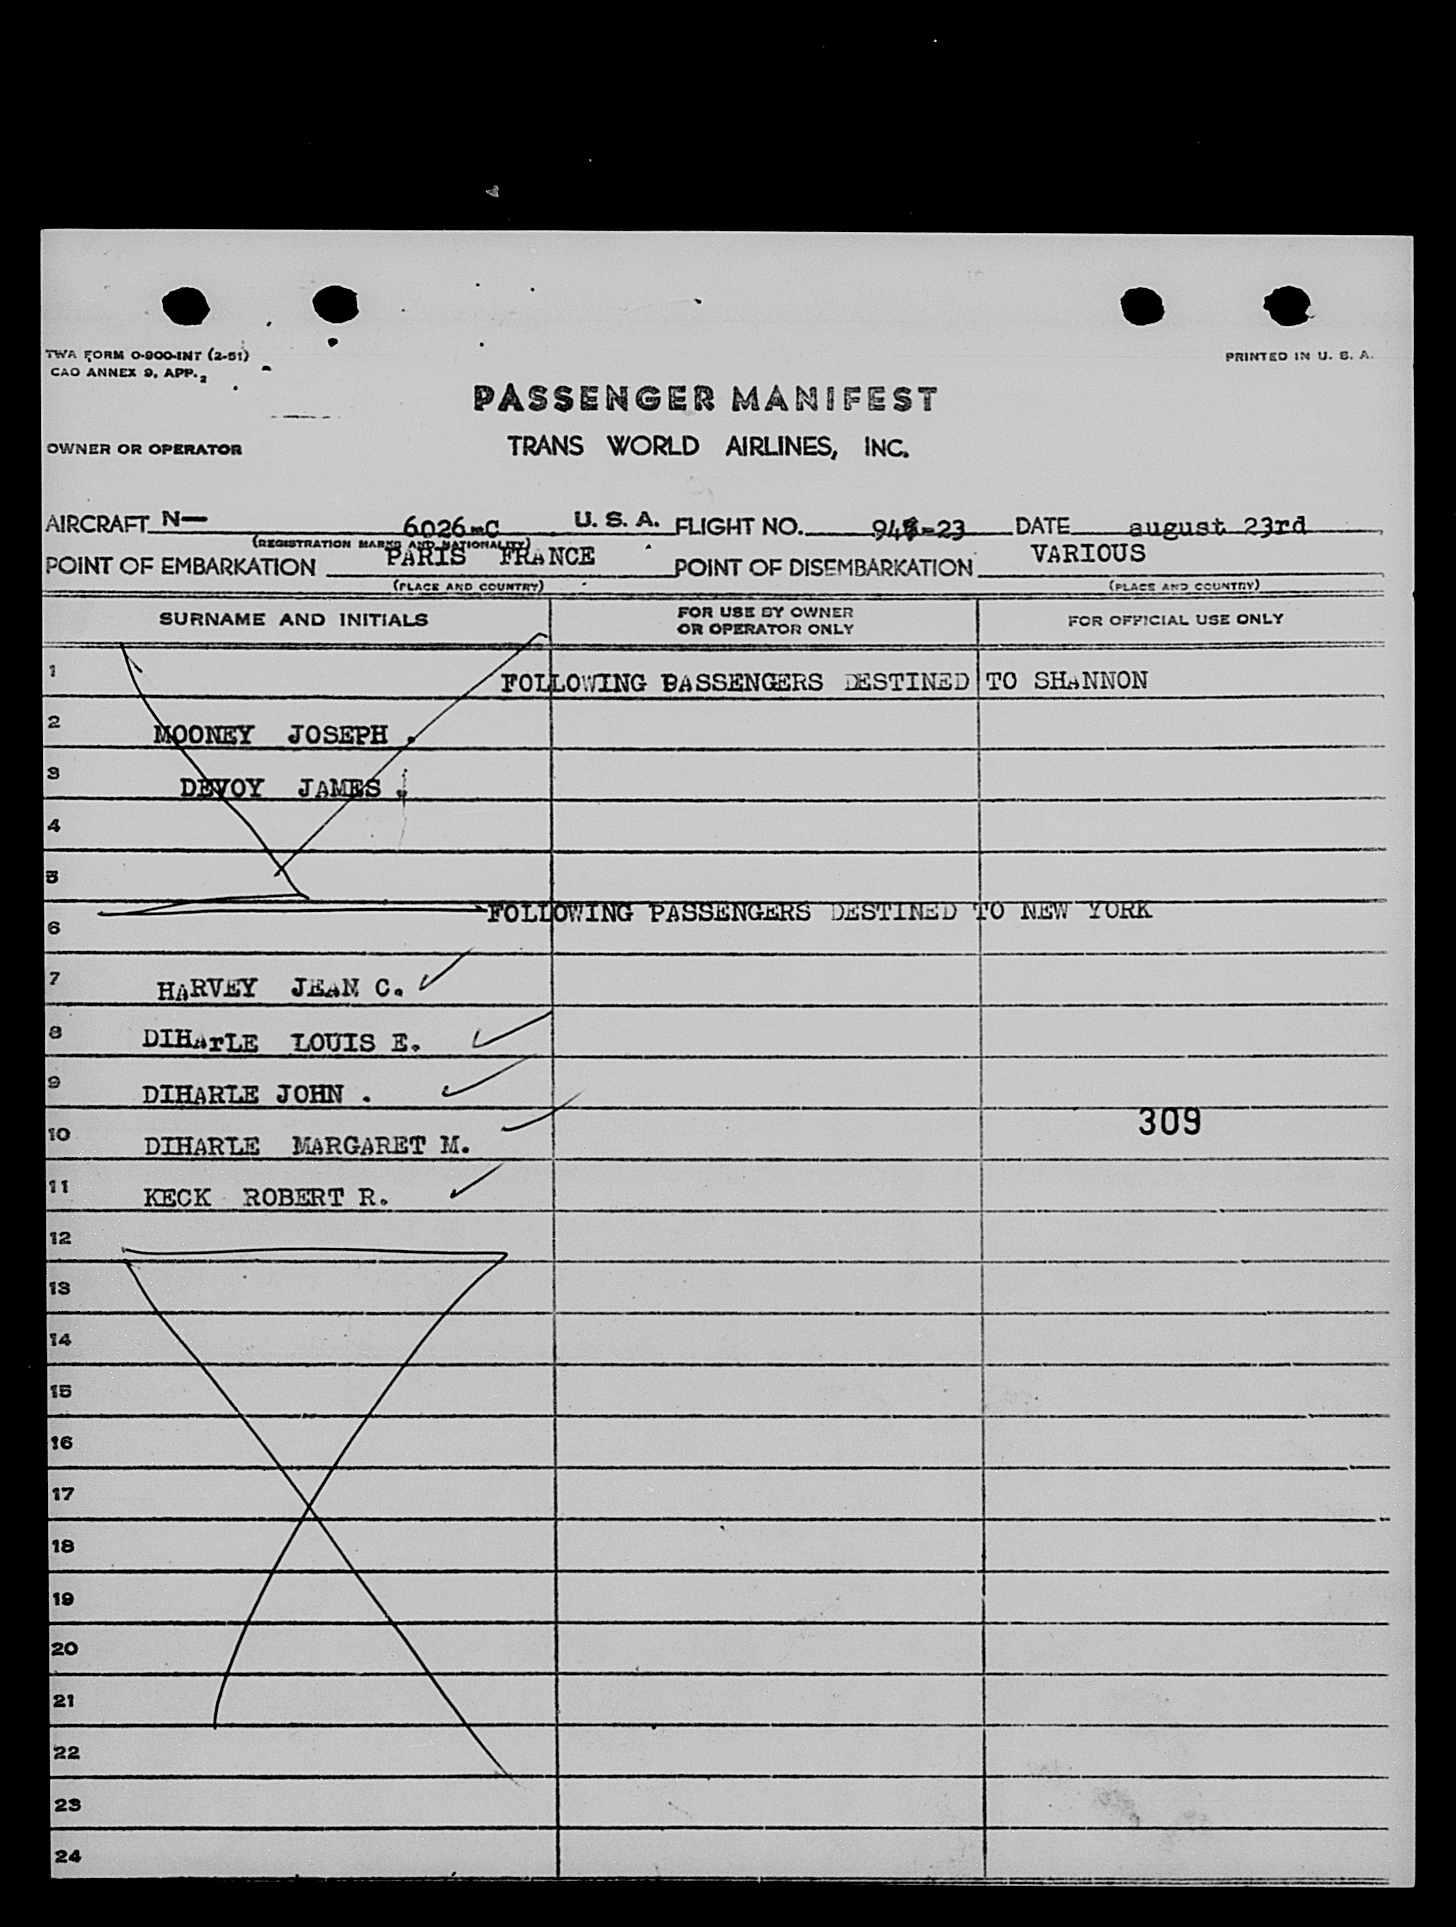 TWA FORM O-900-INT (2-51)
PRINTED IN U. S. A.
CAO ANNEX 9, APP. 2
PASSENGER MANIFEST
OWNER OR OPERATOR
TRANS WORLD AIRLINES, INC.
AIRCRAFT N— 6026-C U. S. A. FLIGHT NO. DATE august 23rd
(REGISTRATION MARKS AND NATIONALITY)
POINT OF EMBARKATION PARIS FRANCE POINT OF DISEMBARKATION VARIOUS
(PLACE AND COUNTRY) (PLACE AND COUNTRY)
SURNAME AND INITIALS FOR USE BY OWNER OR OPERATOR ONLY FOR OFFICIAL USE ONLY
1 FOLLOWING PASSENGERS DESTINED TO SHANNON
2 MOONEY JOSEPH .
3 DEVOY JAMES .
4
5
6 FOLLOWING PASSENGERS DESTINED TO NEW YORK
7 HARVEY JEAN C.
8 DIHArLE LOUIS E.
9 DIHARLE JOHN .
10 DIHARLE MARGARET M.
309
11 KECK ROBERT R.
12
13
14
15
16
17
18
19
20
21
22
23
24